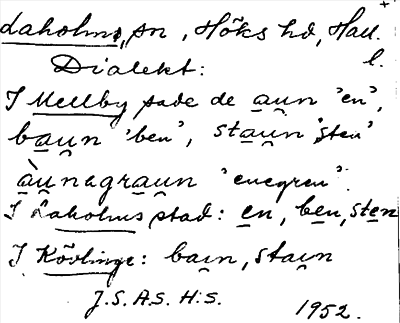 Laholms, sn, Höks hd, Hall.
l.
Dialekt:
I Mellby sade de a̲u̯n 'en',
ba̲u̯n 'ben', sta̲u̯n 'sten'
à̲u̯nagra̲u̯n 'enegren'.
I Laholms stad: e̲n, be̲n, ste̲n
I Kövlinge: bai̯n, stai̯n
J.S.A.S. H.S.
1952.